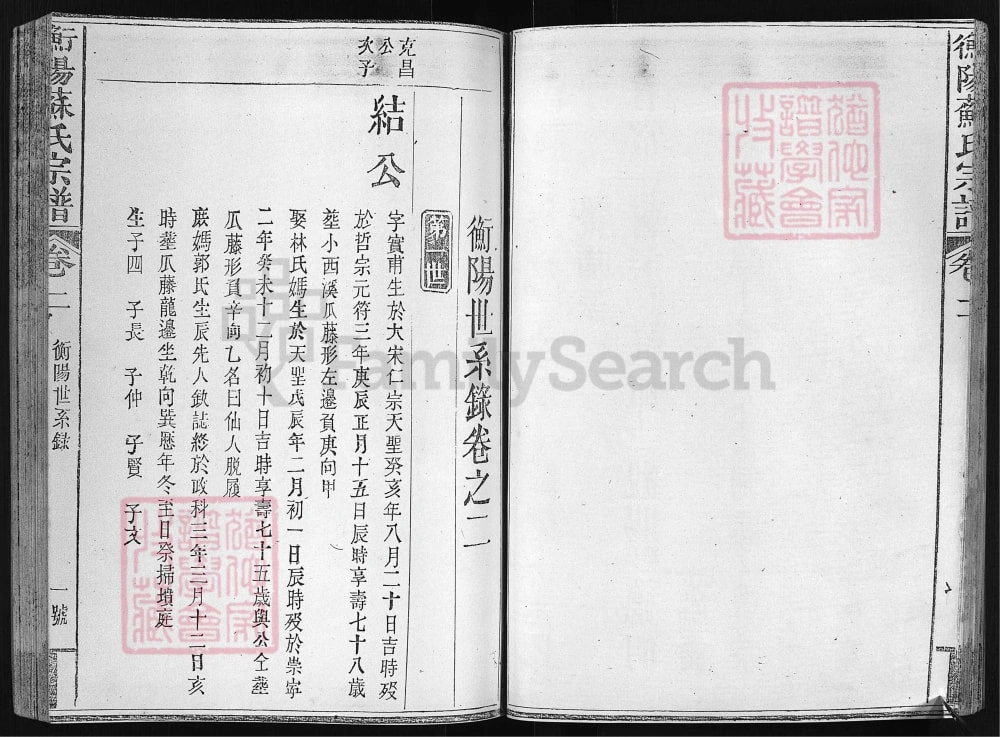 衡陽蘇氏宗譜 卷二
衡陽世系錄卷之二
第一世
克昌
公
次子
結公
字實甫生於大宋仁宗天聖癸亥年八月二十日吉時歿
於哲宗元符三年庚辰正月十五日辰時享壽七十八歲
塟小西溪瓜藤形左邊負庚向甲
娶林氏媽生於天聖戊辰年二月初一日辰時歿於崇寧
二年癸未十二月初十日吉時享壽七十五歲與公仝塟
瓜藤形負辛向乙名曰仙人脫履
庶媽郭氏生辰先人缺誌終於政科三年三月十二日亥
時塟瓜藤龍邊坐乾向巽歷年冬至日祭掃墳庭
生子四 子長 子仲 子賢 子文
衡陽蘇氏宗譜 卷二 衡陽世系錄 一號
FamilySearch